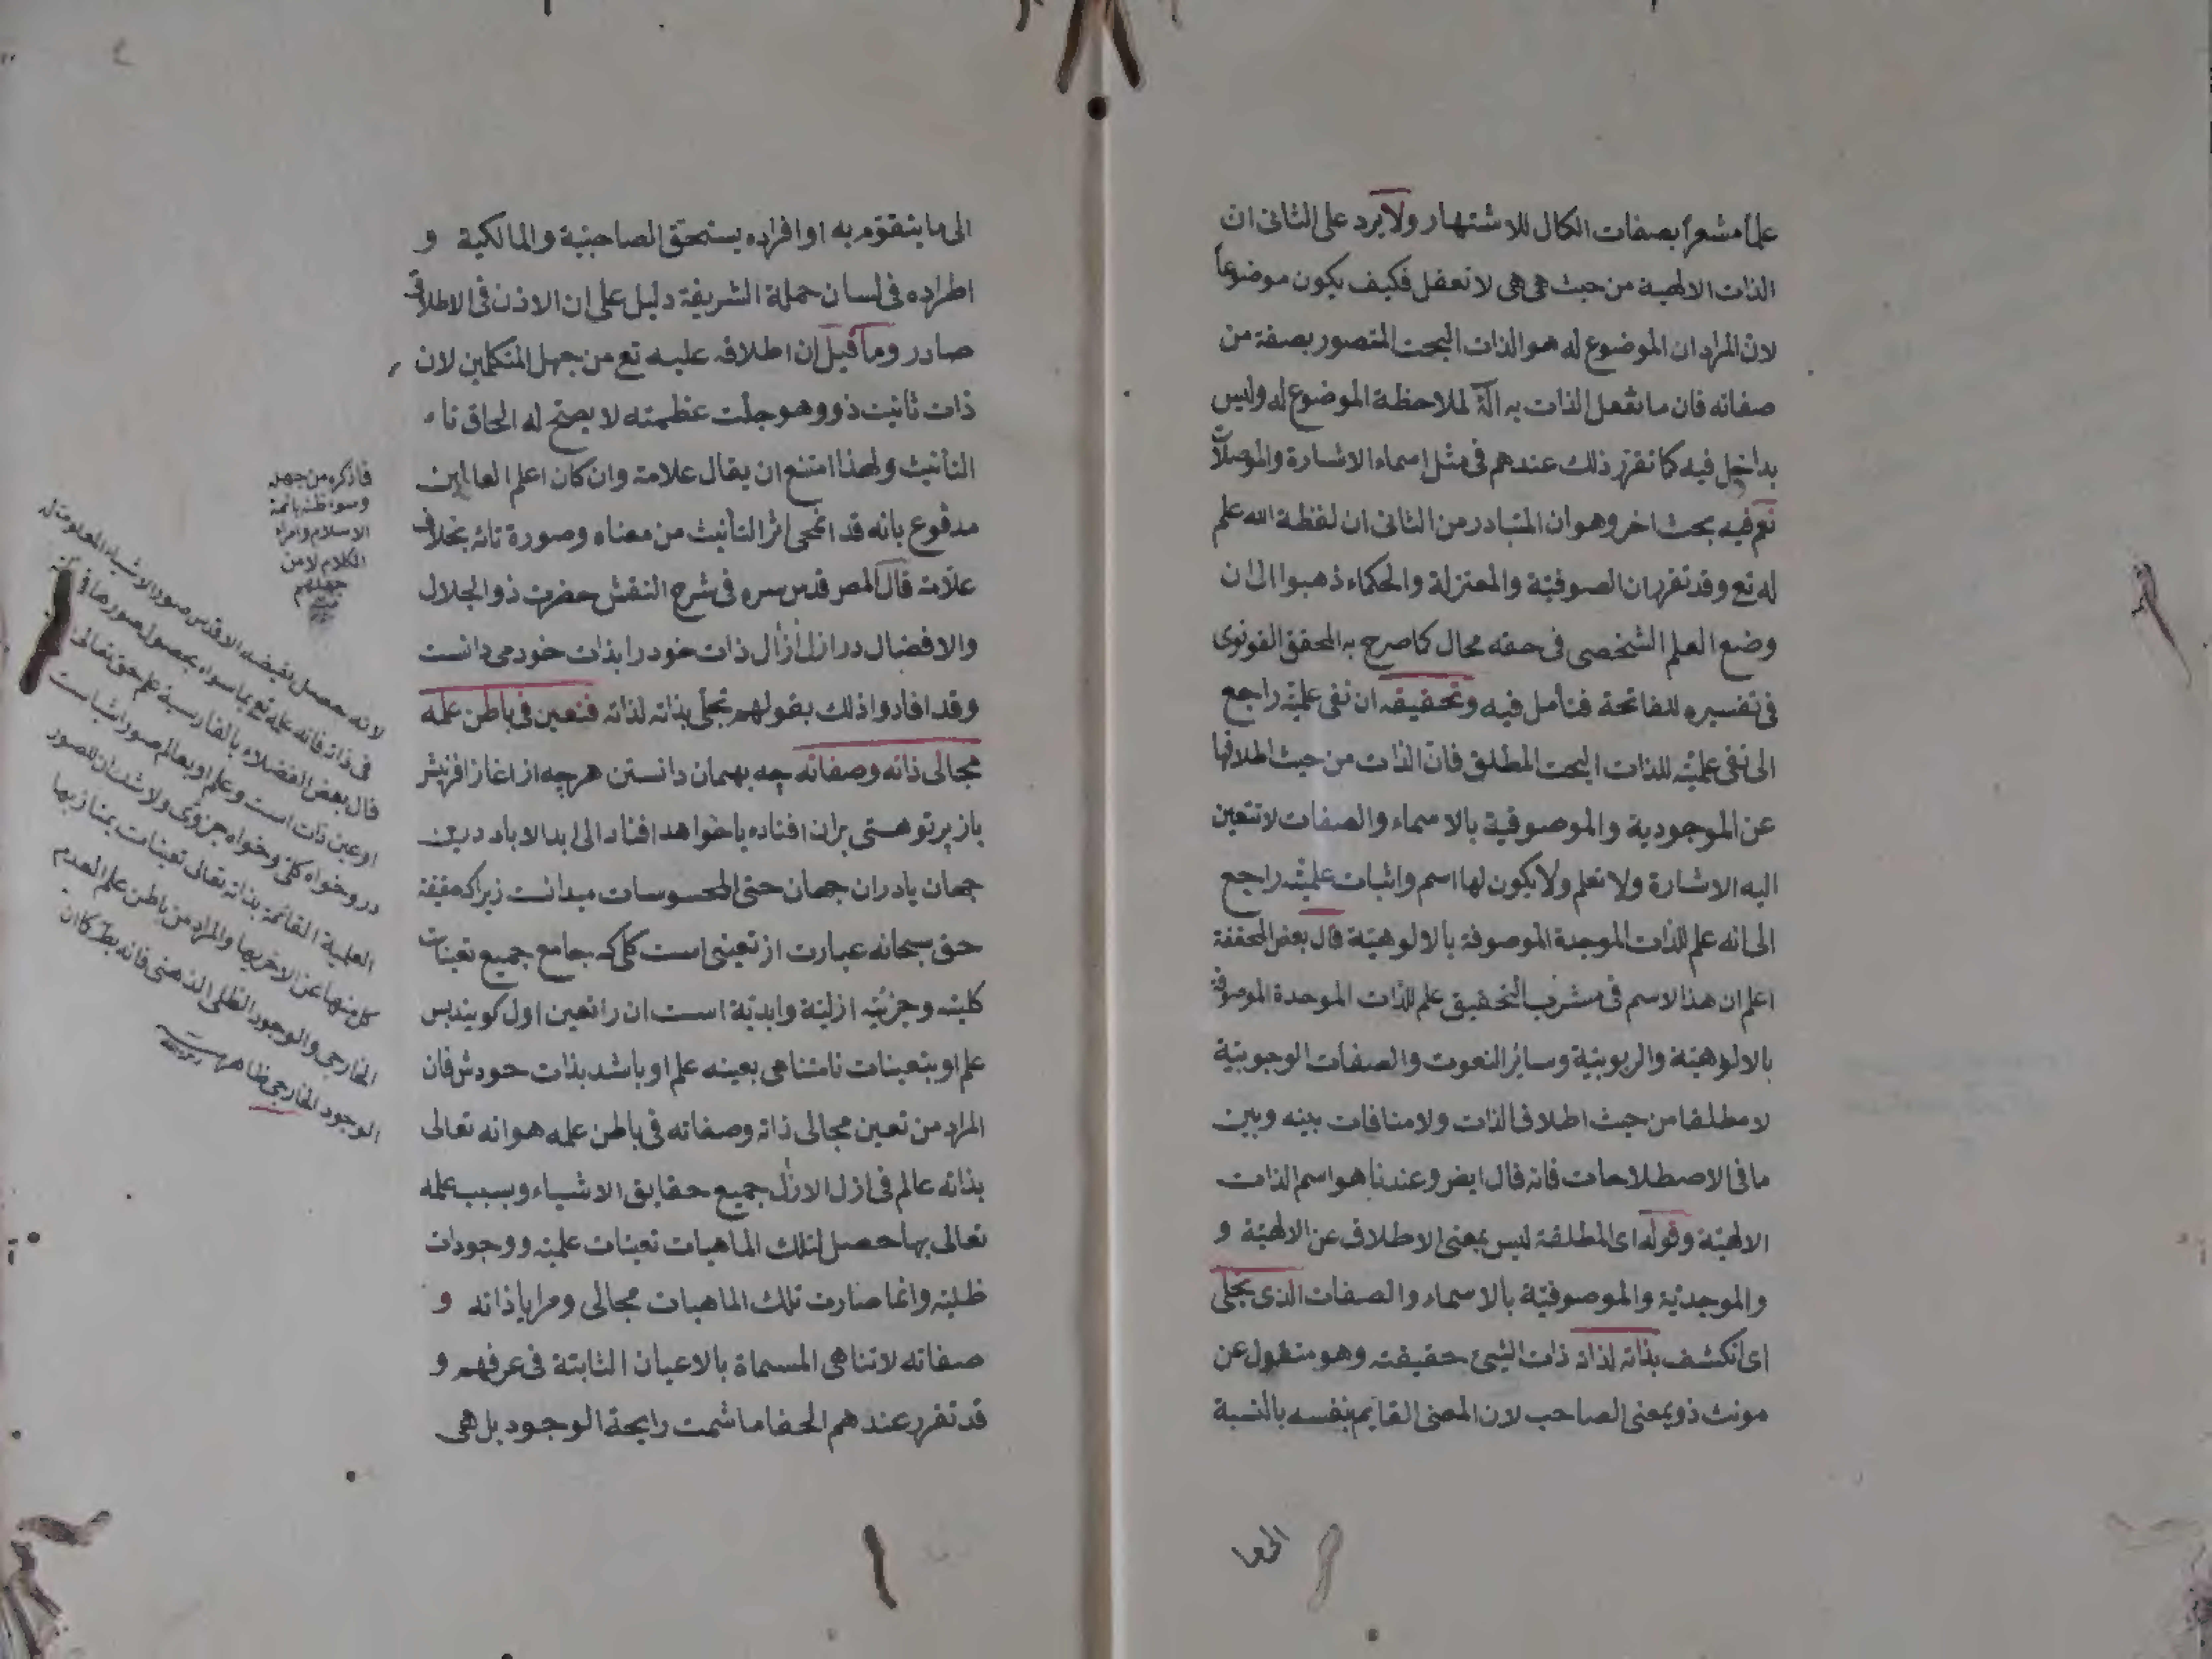 علماً مشعراً بصفات الكمال للاشتهار ولا يرد على الثانى ان
الذات الالهية من حيث هى هى لا تعقل فكيف يكون موضوعاً
لان المراد ان الموضوع له هو الذات البحت المتصور بصفة من
صفاته فان ما تعقل الذات به آلة لملاحظة الموضوع له وليس
بداخل فيه كما تقرر ذلك عندهم فى مثل اسماء الاشارة والموصلات
نعم فيه بحث اخر وهو ان المتبادر من الثانى ان لفظة الله علم
له تع وقد تقرر ان الصوفية والمعتزلة والحكماء ذهبوا الى ان
وضع العلم الشخصى فى حقه محال كما صرح به المحقق القونوى
فى تفسيره للفاتحة فتأمل فيه وتحقيقه ان نفى علميته راجع
الى نفى علميته للذات البحت المطلق فان الذات من حيث اطلاقها
عن الموجودية والموصوفية بالاسماء والصفات لا تتعين
اليه الاشارة ولا تعلم ولا يكون لها اسم واثبات علميته راجع
الى انه علم للذات الموجدة الموصوفة بالالوهية قال بعض المحققة
اعلم ان هذا الاسم فى مشرب التحقيق علم للذات الموحدة الموصوفة
بالالوهية والربوبية وسائر النعوت والصفات الوجوبية
لا مطلقا من حيث اطلاق الذات ولا منافات بينه وبين
ما فى الاصطلاحات فانه قال ايض وعندنا هو اسم الذات
الالهية وقوله اى المطلقة ليس بمعنى الاطلاق عن الالهية و
والموجدية والموصوفية بالاسماء والصفات الذى تجلى
اى انكشف بذاته لذاته ذات الشئ حقيقته وهو منقول عن
مونث ذو بمعنى الصاحب لان المعنى القايم بنفسه بالنسبة
الى ما يتقوم به او افراده يستحق الصاحبية والمالكية و
اطراده فى لسان حملة الشريفة دليل على ان الاذن فى الاطلاق
صادر وما قيل ان اطلاقه عليه تع من جهل المتكلمين لان
ذات تانيث ذو وهو جلت عظمته لا يصح له الحاق تاء
التأنيث ولهذا امتنع ان يقال علامة وان كان اعلم العالمين
مدفوع بانه قد انمحى اثر التأنيث من معناه وصورة تائه بخلاف
علامة قال المص قدس سره فى شرح النقش حضرت ذو الجلال
والافضال در ازل ازال ذات خود را بذات خود مى دانست
وقد افادوا ذلك بقولهم تجلى بذاته لذاته فتعين فى باطن علمه
مجالى ذاته وصفاته چه بهمان دانستن هرچه از اغاز افرينش
باز پرتو هستى بران افتاده يا خواهد افتاد الى ابد الاباد درين
جهان يا دران جهان حتى المحسوسات ميدانست زيرا كه حقيقة
حق سبحانه عبارت از تعينى است كلى كه جامع جميع تعينات
كلية وجزئية ازلية وابدية است ان را تعين اول كويند پس
علم او بتعينات نامتناهى بعينه علم او باشد بذات خودش فان
المراد من تعين مجالى ذاته وصفاته فى باطن علمه هو انه تعالى
بذاته عالم فى ازل الازل جميع حقايق الاشياء وبسبب علمه
تعالى بها حصل لتلك الماهيات تعينات علمية ووجودات
ظلية وانما صارت تلك الماهيات مجالى ومرايا ذاته و
صفاته لا تتناهى المسماة بالاعيان الثابتة فى عرفهم و
قد تقرر عندهم الحفا ما شمت رايحة الوجود بل هى
فاذكره من جهل
وسوء ظنه بائمة
الاسلام وامراء
الكلام لا من
جهلهم
لانه حصل بفيضه الاقدس صور الاشياء المعلومة له
فى ذاته فانه علمه تع بما سواه بحصول صورها فى
قال بعض الفضلاء بالفارسية علم حق تعالى
او عين ذات است وعلم او بعالم صور اشياست
در و خواه كلى و خواه جزوى ولا شك ان للصور
العلمية القائمة بذاته تعالى تعينات يمتاز بها
كل منها عن الاخر بها والمراد من باطن علم العدم
الخارجى والوجود الظلى الذهنى فانه بطن كما ان
الوجود الخارجى ظاهر